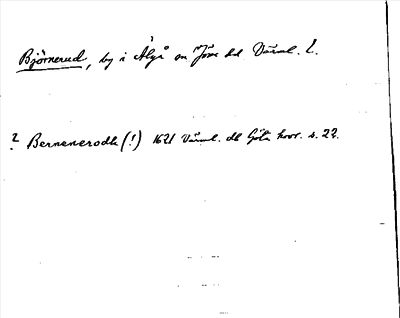 Björnerud, by i Älgå sn Jösse hd Värml. l.
? Bernenerodh (!) 1621 Värml. dh Göta hovr. s. 22.